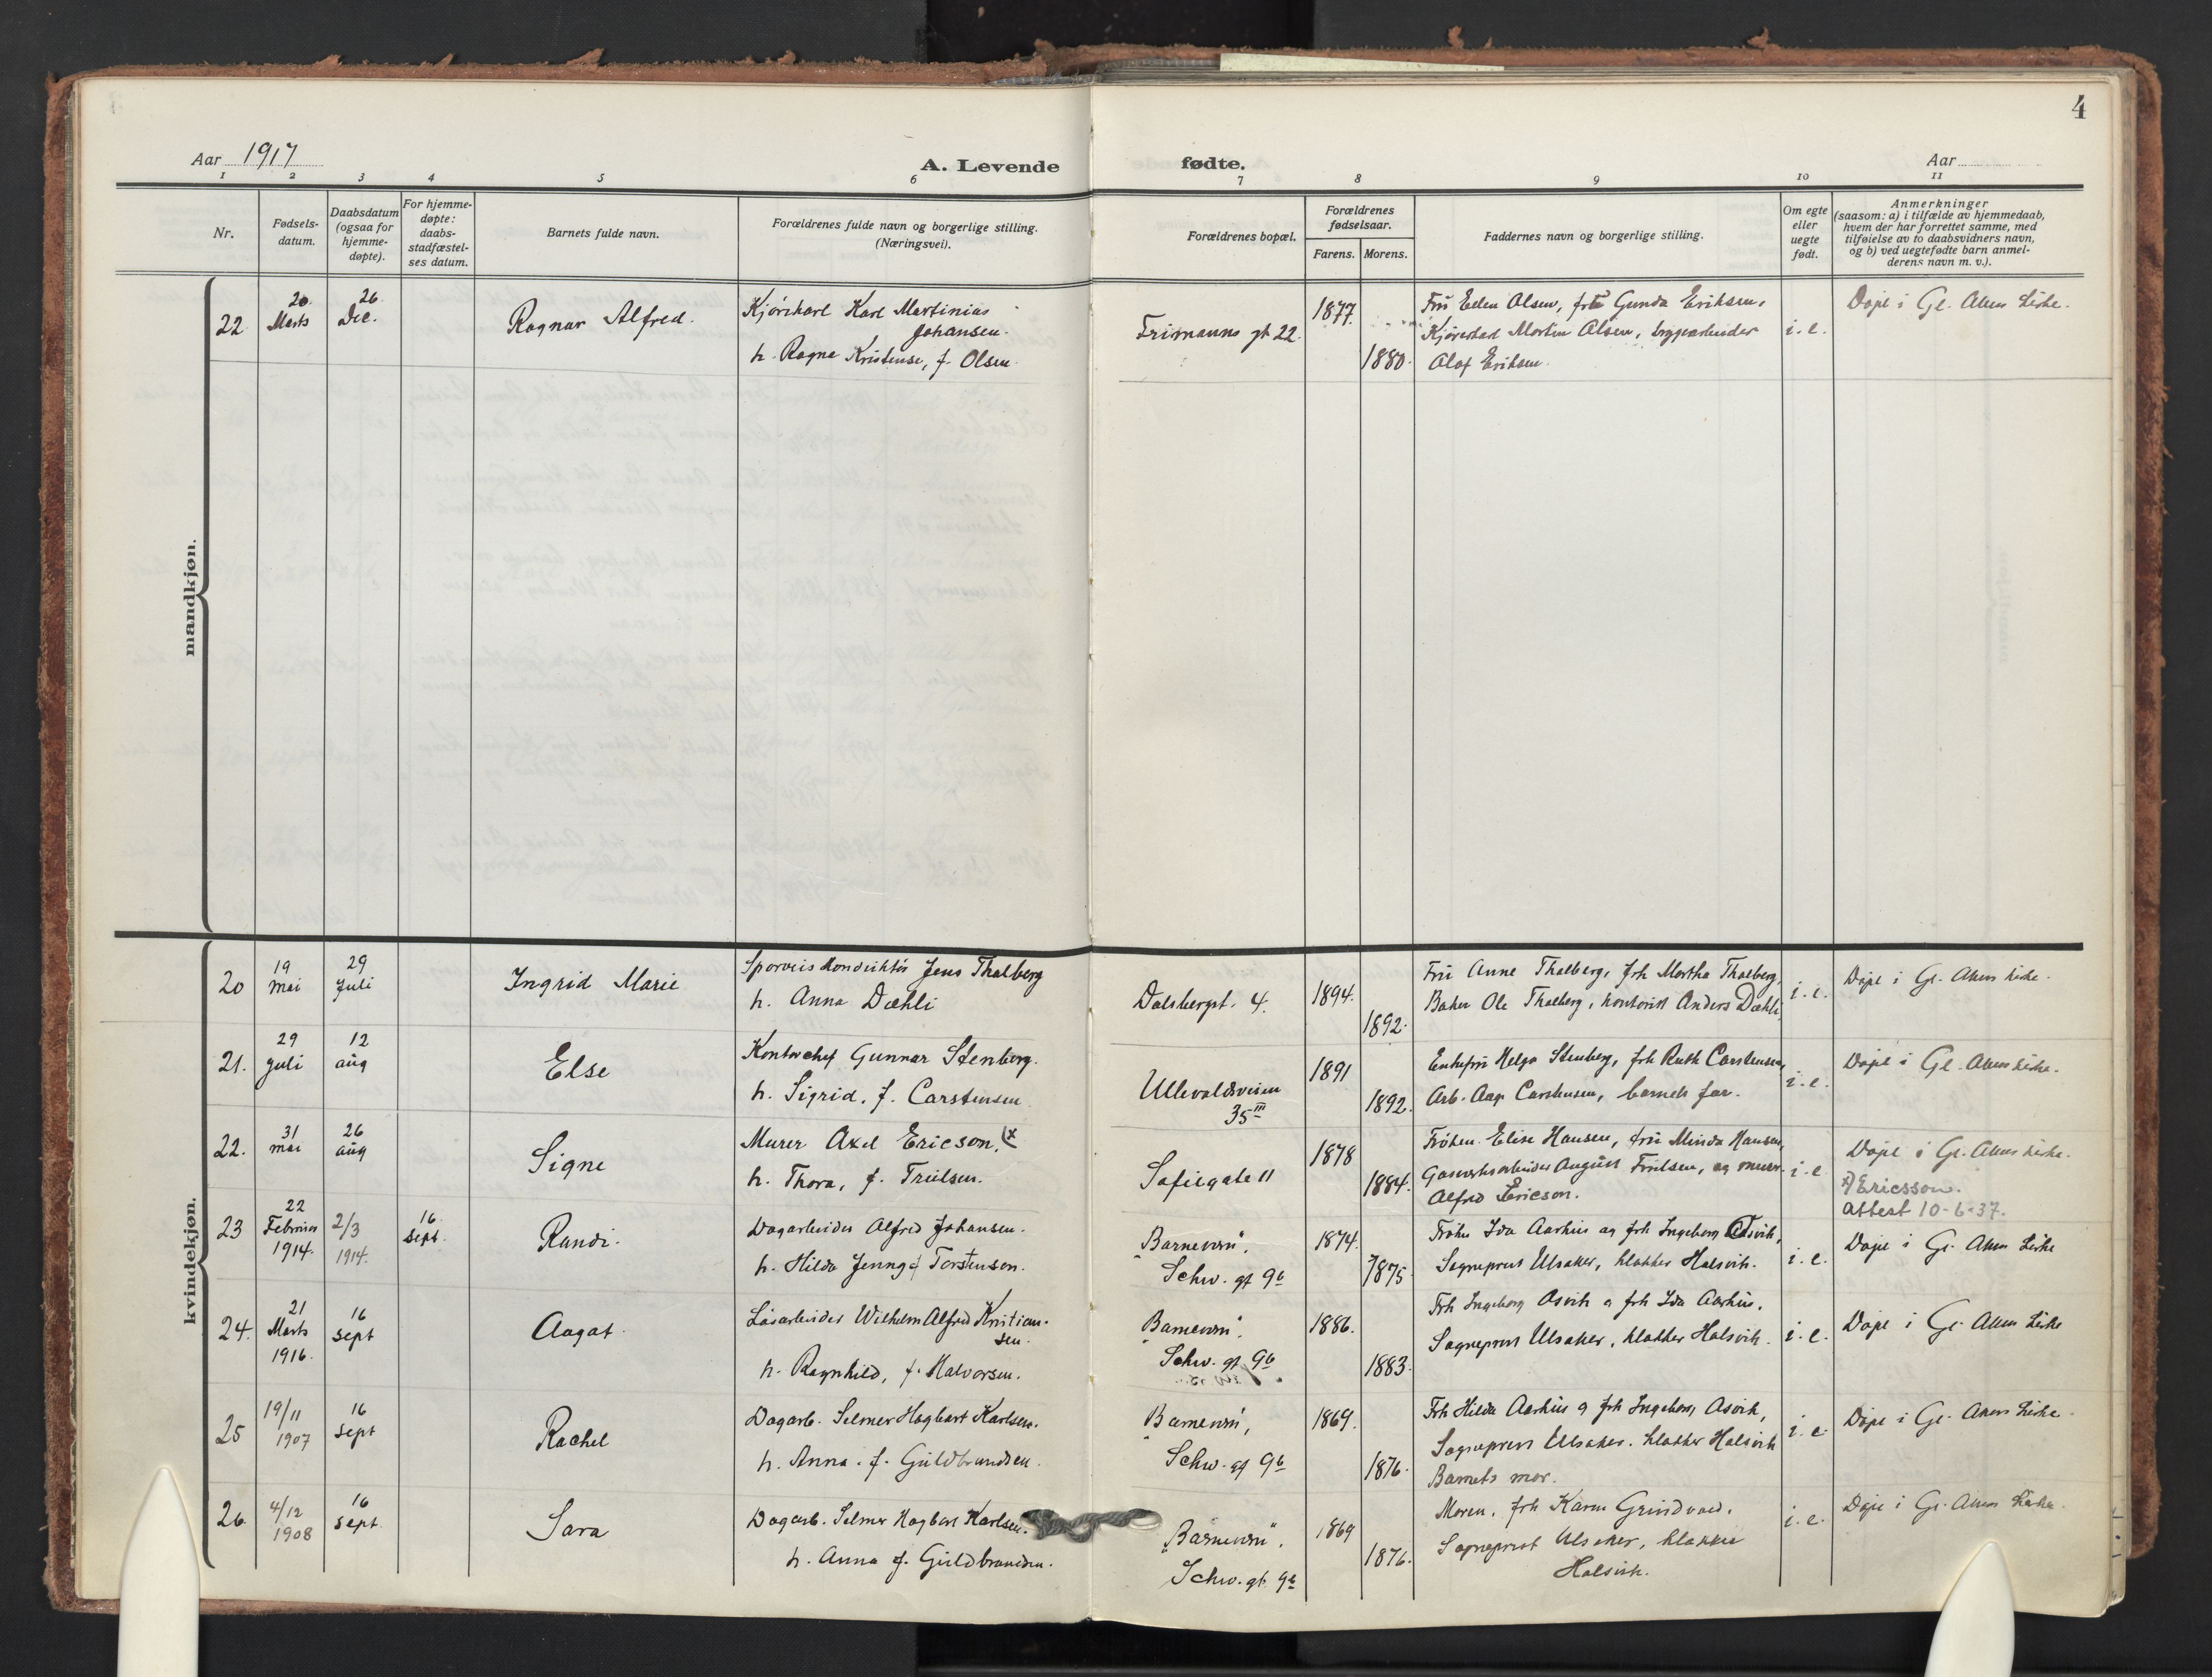 4
Aar 1917
A. Levende fødte.
Aar
1 2 3 4 5 6 7 8 9 10 11
Nr.
Fødsels-
datum.
Daabsdatum
(ogsaa for
hjemme-
døpte).
For hjemme-
døpte:
daabs-
stadfæstel-
ses datum.
Barnets fulde navn.
Forældrenes fulde navn og borgerlige stilling.
(Næringsvei).
Forældrenes bopæl.
Forældrenes
fødselsaar.
Farens. Morens.
Faddernes navn og borgerlige stilling.
Om egte
eller
uegte
født.
Anmerkninger
(saasom: a) i tilfælde av hjemmedaab,
hvem der har forrettet samme, med
tilføielse av to daabsvidners navn,
og b) ved uegtefødte barn anmel-
derens navn m. v.).
mandkjøn.
22
20.
Marts
26
Dec.
Ragnar Alfred.
Kjørekarl Karl Martinius
Johansen.
h. Ragna Kristense, f. Olsen.
Frimanns gt 22.
1877.
1880.
Fru Ellen Olsen, fru Gunda Eriksen,
Kjørekarl Martin Olsen, bryggearbeider
Olaf Eriksen.
i. e.
Døpt i Gl. Akers kirke.
kvindekjøn.
20
19
mai
29
Juli
Ingrid Marie
Sporveiskonduktør Jens Thalberg
h. Anna Dæhli
Dalsbergst. 4.
1894.
1892.
Fru Anne Thalberg, frk Martha Thalberg,
Baker Ole Thalberg, kontorist Anders Dæhli
i. e.
Døpt i Gl. Akers kirke.
21.
29
juli
12
aug
Else
Kontorchef Gunnar Stenberg.
h. Sigrid, f. Carstensen
Ullevoldsveien
35 III
1891
1892.
Enkefru Helga Stenberg, frk Ruth Carstensen,
Arb. Aage Carstensen, barnets far.
i. e.
Døpt i Gl. Akers kirke.
22.
31
mai
26
aug
Signe
Murer Axel Ericson. (x
h. Thora, f. Truelsen.
Sofiegate 11
1878
1884.
Frøken Elise Hansen, fru Minda Hansen,
Gasverksarbeider August Truelsen, og murer
Alfred Ericson.
i. e
Døpt i Gl. Akers kirke.
x) Ericsson.
Attest 10-6-37.
23
22
Februar
1914.
2/3
1914.
16.
Sept.
Randi.
Dagarbeider Alfred Johansen.
h. Hilda Jenny f Torstenson.
"Barnevern",
Schw. gt 9b
1874.
1875.
Frøken Ida Aarhus og frk Ingeborg Asvik,
Sogneprest Ulsaker, klokker Halsvik.
i. e.
Døpt i Gl. Akers kirke
24.
21
Marts
1916.
16
sept
Aagot.
Løsarbeider Wilhelm Alfred Kristian-
sen.
h. Ragnhild, f. Halvorsen.
"Barnevern",
Schw. gt 9b
1886.
1883.
Frk Ingeborg Asvik og frk Ida Aarhus.
Sogneprest Ulsaker, klokker Halsvik.
i. e.
Døpt i Gl. Akers kirke
25
19/11
1907
16
sept
Rachel
Dagarb. Selmer Hagbart Karlsen.
h. Anna. f. Guldbrandsen.
"Barnevern",
Schw. gt 9b
1869.
1876.
Frk Hilda Aarhus og frk Ingeborg Asvik,
Sogneprest Ulsaker. klokker Halsvik
Barnets mor.
i. e.
Døpt i Gl. Akers kirke.
26.
4/12
1908
16
sept.
Sara
Dagarb. Selmer Hagbart Karlsen.
h. Anna f. Guldbrandsen.
"Barnevern".
Schw. gt. 9b
1869
1876.
Moren, frk Karen Grindvold.
Sogneprest Ulsaker, klokker
Halsvik.
i. e.
Døpt i Gl. Akers kirke.